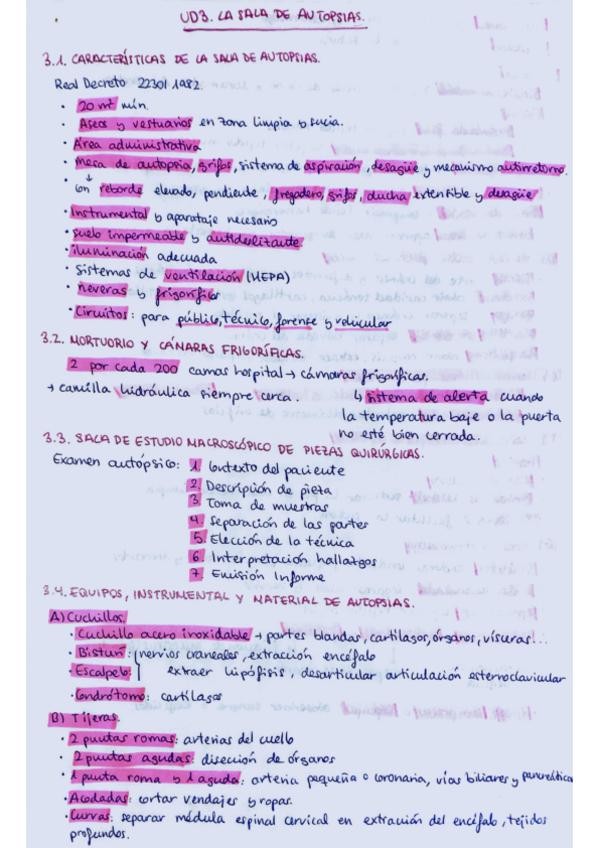 UD3. LA SALA DE AUTOPSIAS.
3.1. CARACTERÍSTICAS DE LA SALA DE AUTOPSIAS.
Real Decreto 2230/1982.
· 20 m² mín.
· Aseos y vestuarios en zona limpia y sucia.
· Área administrativa
· Mesa de autopsia, grifos, sistema de aspiración, desagüe y mecanismo antirretorno.
· ↓
con reborde elevado, pendiente, fregadero, grifos, ducha extensible y desagüe
· Instrumental y aparataje necesario
· suelo impermeable y antideslizante
· iluminación adecuada
· Sistemas de ventilación (HEPA)
· Neveras y frigorífico
· Circuitos: para público, técnico, forense y vehicular
3.2. MORTUORIO Y CÁMARAS FRIGORÍFICAS.
2 por cada 200 camas hospital → cámaras frigoríficas.
→ camilla hidráulica siempre cerca. ↳ sistema de alerta cuando
la temperatura baje o la puerta
no esté bien cerrada.
3.3. SALA DE ESTUDIO MACROSCÓPICO DE PIEZAS QUIRÚRGICAS.
Examen autópsico: 1. Contexto del paciente
2. Descripción de pieza
3. Toma de muestras
4. Separación de las partes
5. Elección de la técnica
6. Interpretación hallazgos
7. Emisión Informe
3.4. EQUIPOS, INSTRUMENTAL Y MATERIAL DE AUTOPSIAS.
A) Cuchillos.
· Cuchillo acero inoxidable → partes blandas, cartílagos, órganos, vísceras...
· Bisturí: nervios craneales, extracción encéfalo
· Escalpelo: extraer hipófisis, desarticular articulación esternoclavicular
· Condrótomo: cartílagos
B) Tijeras.
· 2 puntas romas: arterias del cuello
· 2 puntas agudas: disección de órganos
· 1 punta roma y 1 aguda: arteria pequeña o coronaria, vías biliares y pancreática
· Acodadas: cortar vendajes y ropas.
· Curvas: separar médula espinal cervical en extracción del encéfalo, tejidos
profundos.